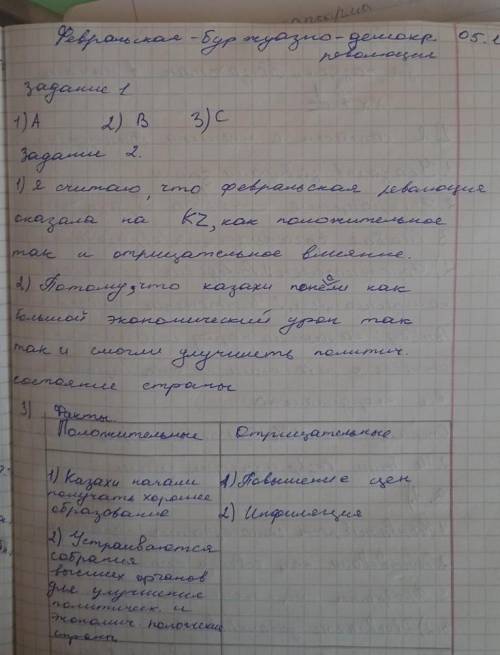 Февральская-буржуазно-демокр. 05.1
революция
Задание 1
1) А 2) В 3) С
Задание 2.
1) Я считаю, что февральская революция
оказала на KZ, как положительное
так и отрицательное влияние.
2) Потому, что казахи понели как
большой экономический урон так
так и смогли улучшить политич.
состояние страны
3) Факты
Положительные Отрицательные
1) Казахи начали 1) Повышение цен
получать хорошее
образование 2) Инфиляция
2) Устраиваются
собрания
высших органов
для улучшения
политическ. и
экономич. положение
страны